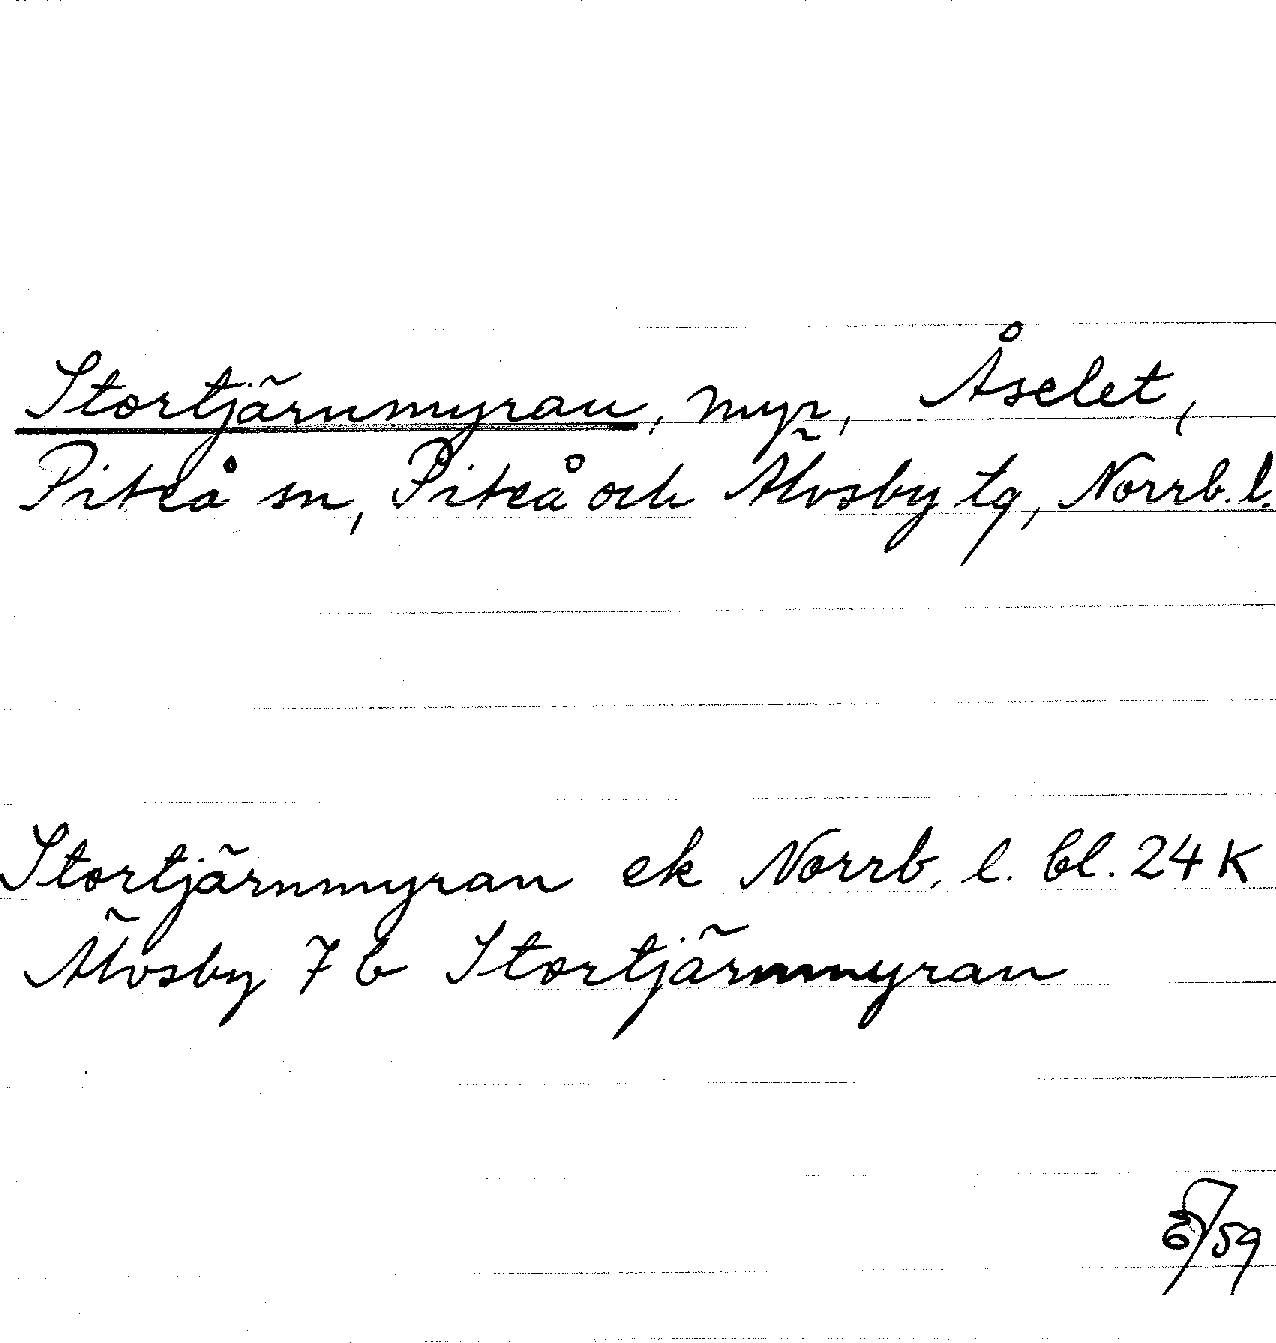 Stortjärnmyran, myr, Åselet,
Piteå sn, Piteå och Älvsby tg, Norrb. l.
Stortjärnmyran ek Norrb. l. bl. 24 K
Älvsby 7 b Stortjärnmyran
/59